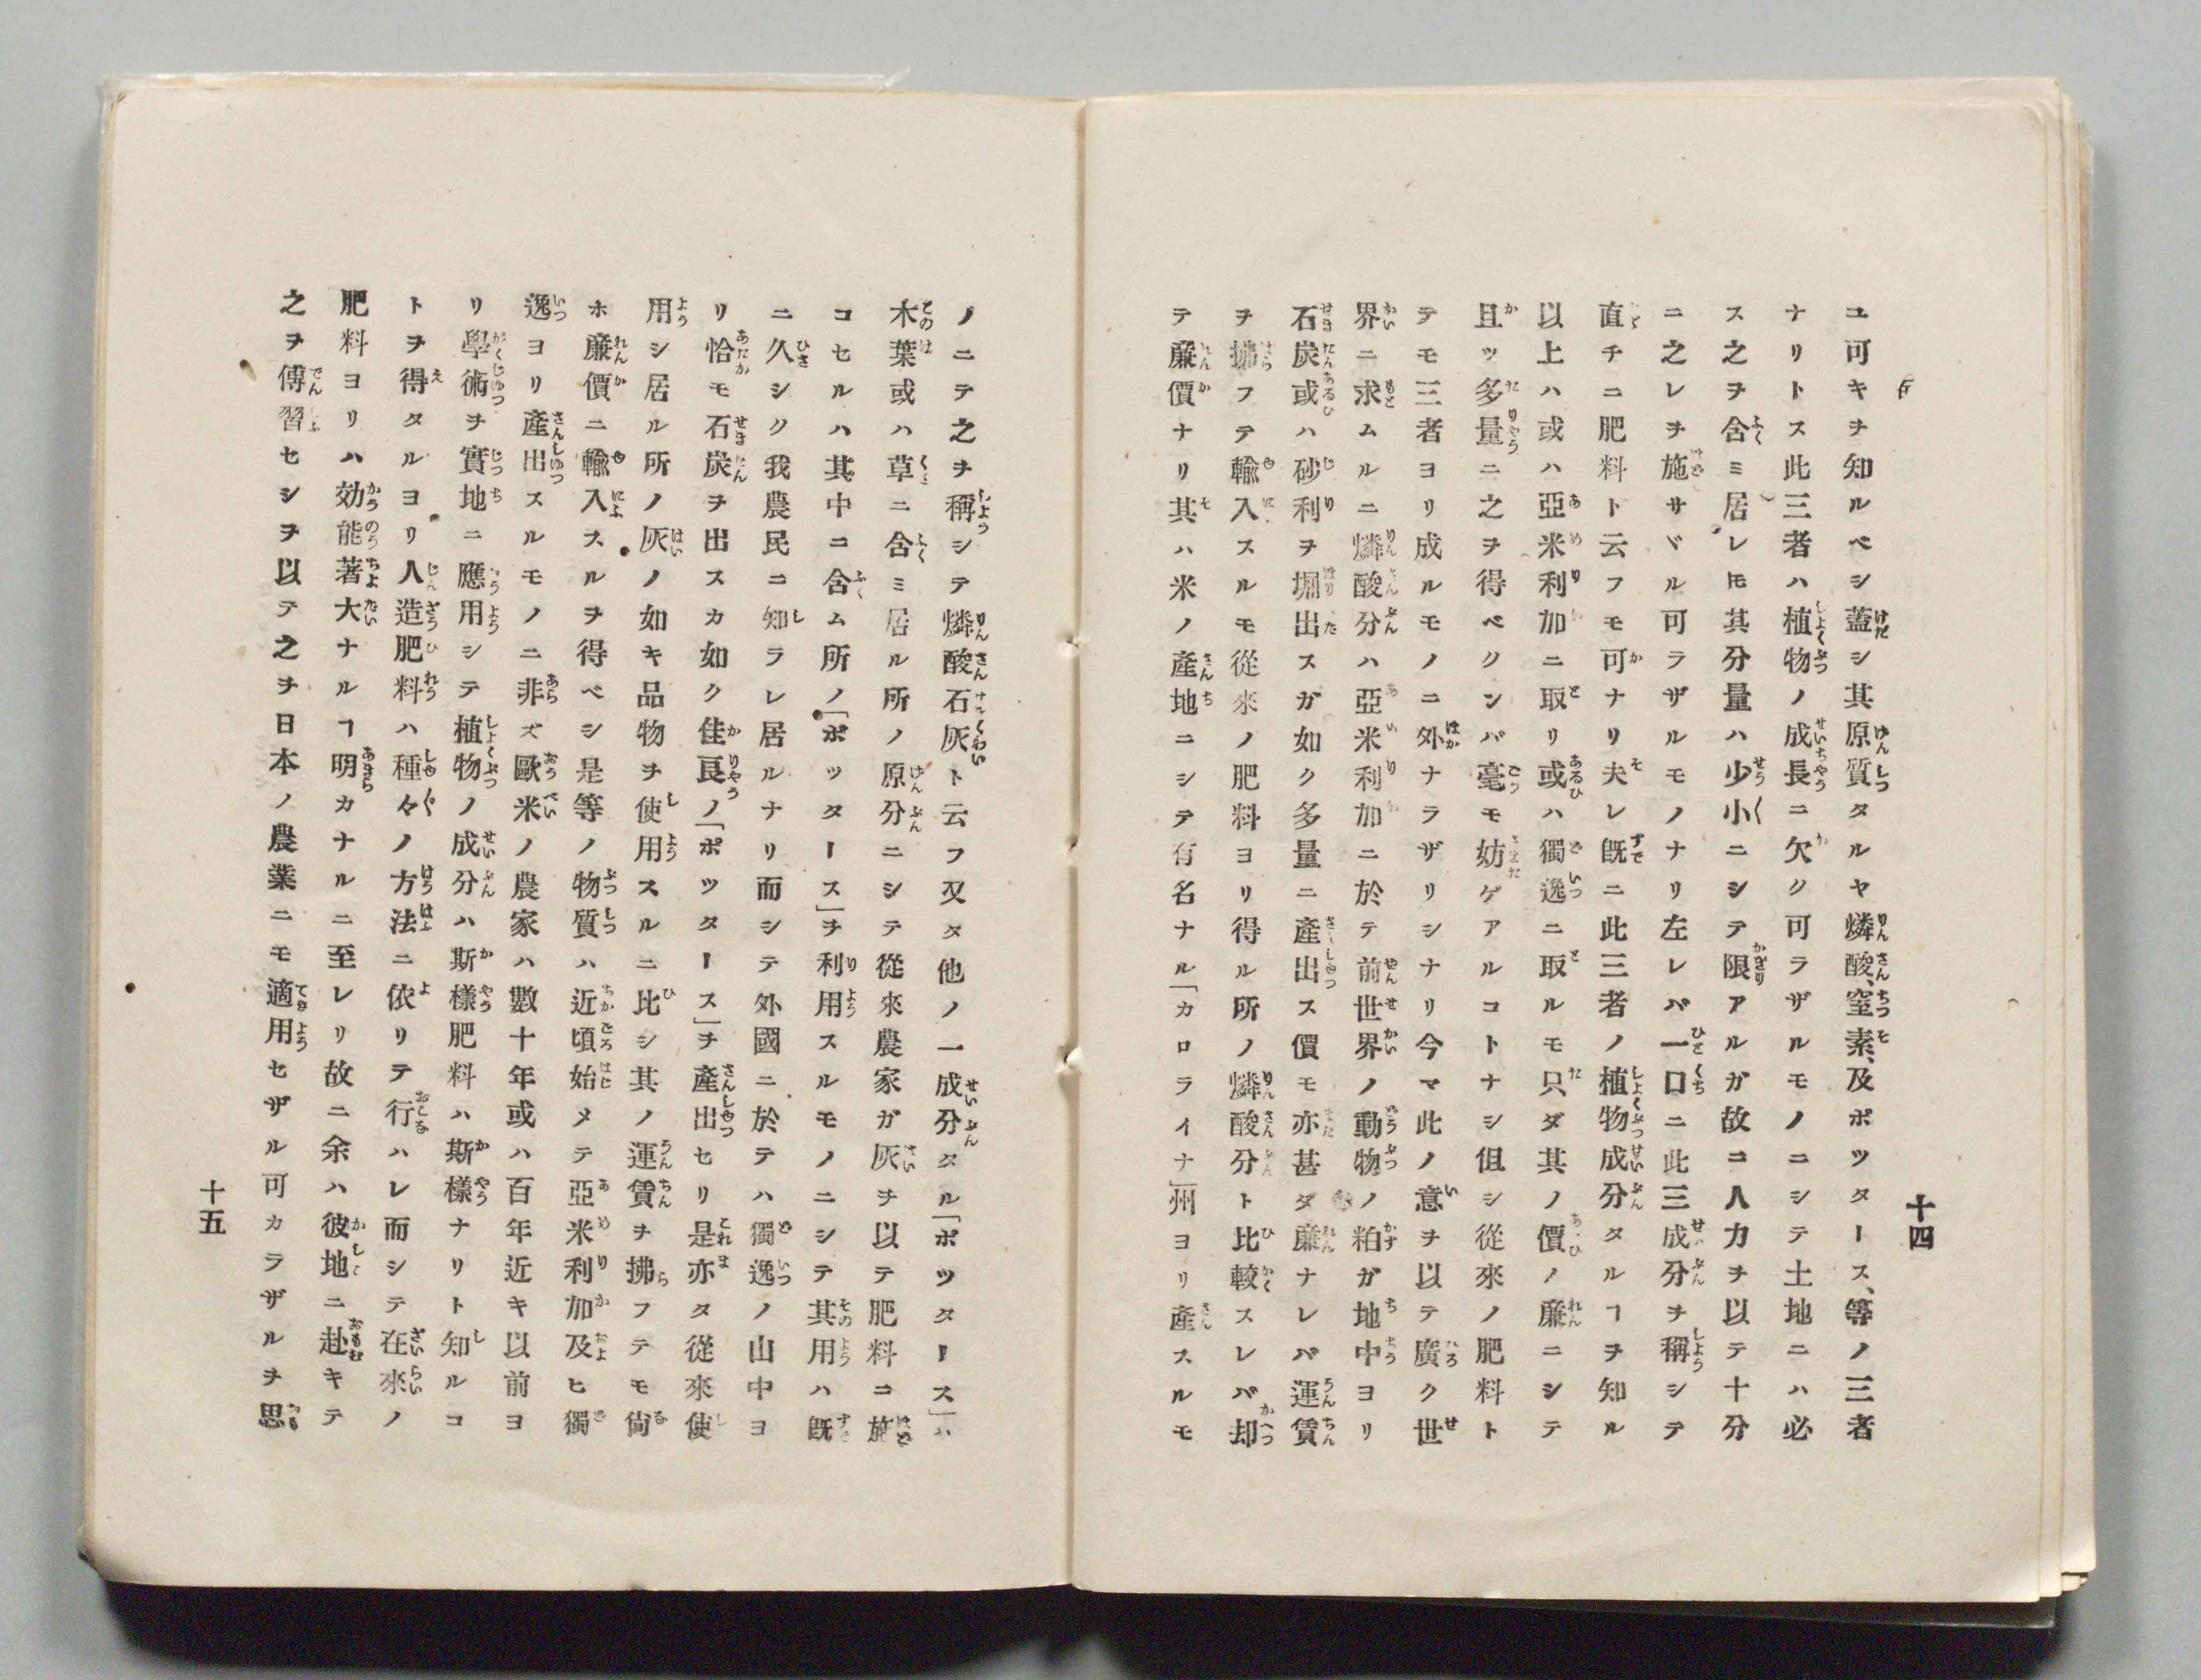 十四
ユ可キヲ知ルベシ蓋シ其原質タルヤ燐酸、窒素、及ポツタース、等ノ三者
ナリトス此三者ハ植物ノ成長ニ欠ク可ラザルモノニシテ土地ニハ必
ス之ヲ含ミ居レ𪜈其分量ハ少小ニシテ限アルガ故ニ人力ヲ以テ十分
ニ之レヲ施サヾル可ラザルモノナリ左レバ一口ニ此三成分ヲ稱シテ
直チニ肥料ト云フモ可ナリ夫レ既ニ此三者ノ植物成分タルヿヲ知ル
以上ハ或ハ亞米利加ニ取リ或ハ獨逸ニ取ルモ只ダ其ノ價ノ廉ニシテ
且ツ多量ニ之ヲ得ベクンバ毫モ妨ゲアルコトナシ但シ從來ノ肥料ト
テモ三者ヨリ成ルモノニ外ナラザリシナリ今マ此ノ意ヲ以テ廣ク世
界ニ求ムルニ燐酸分ハ亞米利加ニ於テ前世界ノ動物ノ粕ガ地中ヨリ
石炭或ハ砂利ヲ堀出スガ如ク多量ニ產出ス價モ亦甚ダ廉ナレバ運賃
ヲ拂フテ輸入スルモ從來ノ肥料ヨリ得ル所ノ燐酸分ト比較スレバ却
テ廉價ナリ其ハ米ノ產地ニシテ有名ナル「カロライナ」州ヨリ產スルモ
ノニテ之ヲ稱シテ燐酸石灰ト云フ又タ他ノ一成分タル「ポツタース」ハ
木葉或ハ草ニ含ミ居ル所ノ原分ニシテ從來農家ガ灰ヲ以テ肥料ニ施
コセルハ其中ニ含ム所ノ「ポツタース」ヲ利用スルモノニシテ其用ハ既
ニ久シク我農民ニ知ラレ居ルナリ而シテ外國ニ於テハ獨逸ノ山中ヨ
リ恰モ石炭ヲ出スカ如ク佳良ノ「ポツタース」ヲ產出セリ是亦タ從來使
用シ居ル所ノ灰ノ如キ品物ヲ使用スルニ比シ其ノ運賃ヲ拂フテモ尙
ホ廉價ニ輸入スルヲ得ベシ是等ノ物質ハ近頃始メテ亞米利加及ヒ獨
逸ヨリ產出スルモノニ非ズ歐米ノ農家ハ數十年或ハ百年近キ以前ヨ
リ學術ヲ實地ニ應用シテ植物ノ成分ハ斯樣肥料ハ斯樣ナリト知ルコ
トヲ得タルヨリ人造肥料ハ種々ノ方法ニ依リテ行ハレ而シテ在來ノ
肥料ヨリハ効能著大ナルヿ明カナルニ至レリ故ニ余ハ彼地ニ赴キテ
之ヲ傳習セシヲ以テ之ヲ日本ノ農業ニモ適用セザル可カラザルヲ思
十五